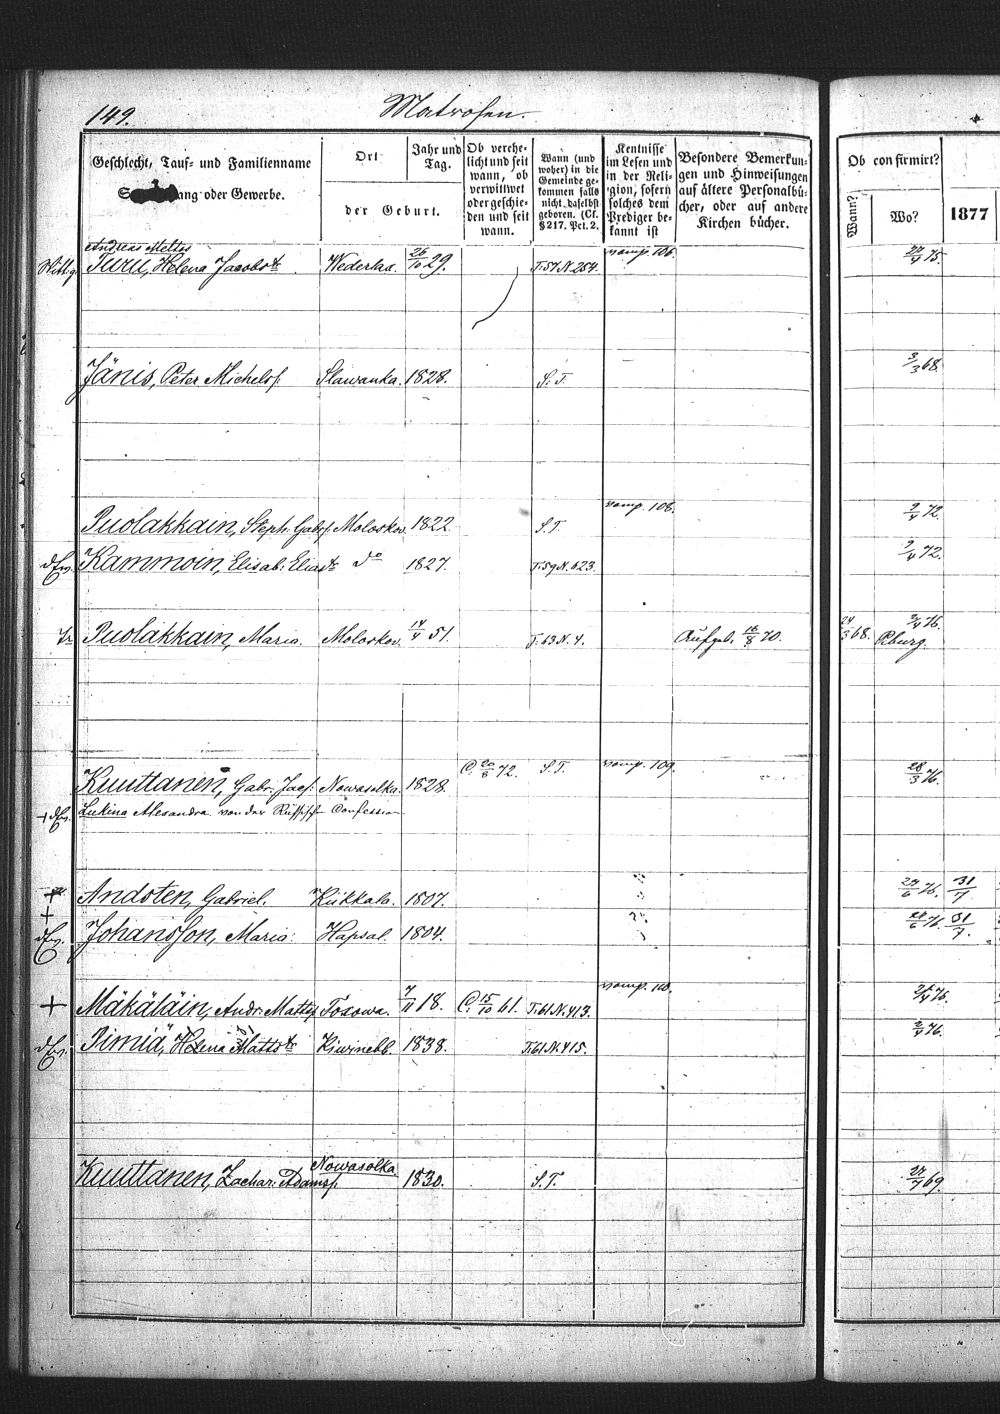 149. Matrosen.
Geschlecht, Tauf- und Familienname
ang oder Gewerbe.
Ort
der Geburt.
Jahr und
Tag.
Ob verehe-
licht und seit
wann, ob
verwittwet
oder geschie-
den und seit
wann.
Wann (und
woher) in die
Gemeinde ge-
kommen falls
nicht daselbst
geboren. (Cf.
§ 217. Pct. 2.
Kentnisse
im Lesen und
in der Reli-
gion, sofern
solches dem
Prediger be-
kannt ist
Besondere Bemerkun-
gen und Hinweisungen
auf ältere Personalbü-
cher, oder auf andere
Kirchen bücher.
Ob confirmirt?
Wann?
Wo?
1877
Andreas Mattss
Wittg. Turu, Helena Jacobstr. 26/10 29. T. 57 N. 254. vomp. 106. 75.
Jänis, Peter Michelss. Slawanka. 1828. S. T. 3/3 68.
Puolakkain, Steph. Gabrs. Moloskov. 1822. S. T. vomp. 108. 2/4 72.
Kammoin, Elisab. Eliastr. do 1827. T. 59 N. 623. 2/4 72.
Tr. Puolakkain, Maria. Moloskov. 14/4 51. T. 63 N. 4. Aufgeb. 16/8 70. 24/3 68. 76.
Pburg.
Kuuttanen, Gabr. Jacs. Nowasolka. 1828. C. 20/6 72. S. T. vomp. 109. 28/3 76.
Lukina Alexandra von der Russischen Confession
Andoten, Gabriel. Kükkala. 1807. 27/6 76. 31/7
Johansson, Maria. Hapsal. 1804. 76. 31/7.
+ Mäkäläin, Andr. Mattss Tosowa. 7/11 18. C. 15/10 61. T. 61 N. 413. vomp. 110. 76.
Pimiä, Helena Mattstr Kiwinebb. 1838. T. 61 N. 415. 76.
Kuuttanen, Zachar. Adamss. Nowasolka. 1830. S. T. 69.